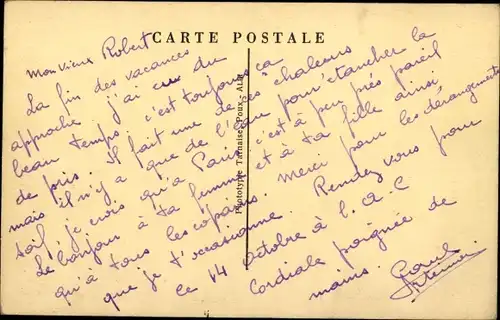 CARTE POSTALE
Mon vieux Robert
La fin des vacances
approche, j'ai eu du
beau temps, c'est toujours ça
de pris. Il fait une de ces "chaleurs
mais il n'y a que de l'eau pour étancher la
soif, je crois qu'à Paris c'est à peu près pareil
le bonjour à ta femme et à ta fille ainsi
qu'à tous les copains. Merci pour les dérangements
que je t'occasionne Rendez vous pour
ce 14 octobre à l.A.C
Cordiale poignée de
mains.
Phototypie Tarnaise, Poux - Albi